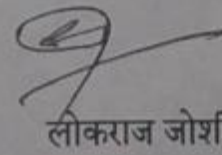 लोकराज जोशी